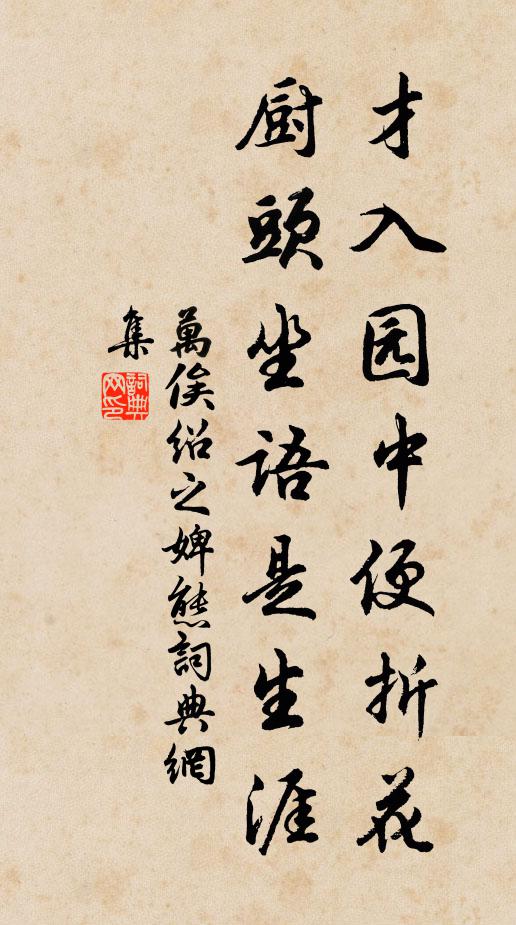 才入园中便折花
厨頭坐語是生涯
萬俟绍之婢態詞典網
集
詞典网印